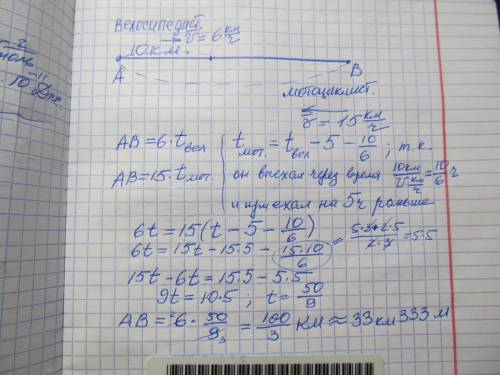 Велосипедист.
→ v̄ = 6 км/ч
10 км.
A
B
мотоциклист.
← v̄ = 15 км/ч
AB = 6 · t вел
t мот. = t вел − 5 − 10/6 ; т.к.
AB = 15 · t мот.
он выехал через время 10км/v км/ч = 10/6 ч
и приехал на 5ч раньше
6t = 15(t − 5 − 10/6)
6t = 15t − 15.5 − 15·10/6 = 5·3·2·5/2·3 = 5·5
15t − 6t = 15.5 − 5.5
9t = 10·5 ; t = 50/9
AB = ²6 · 50/9₃ = 100/3 км ≈ 33км 333 м